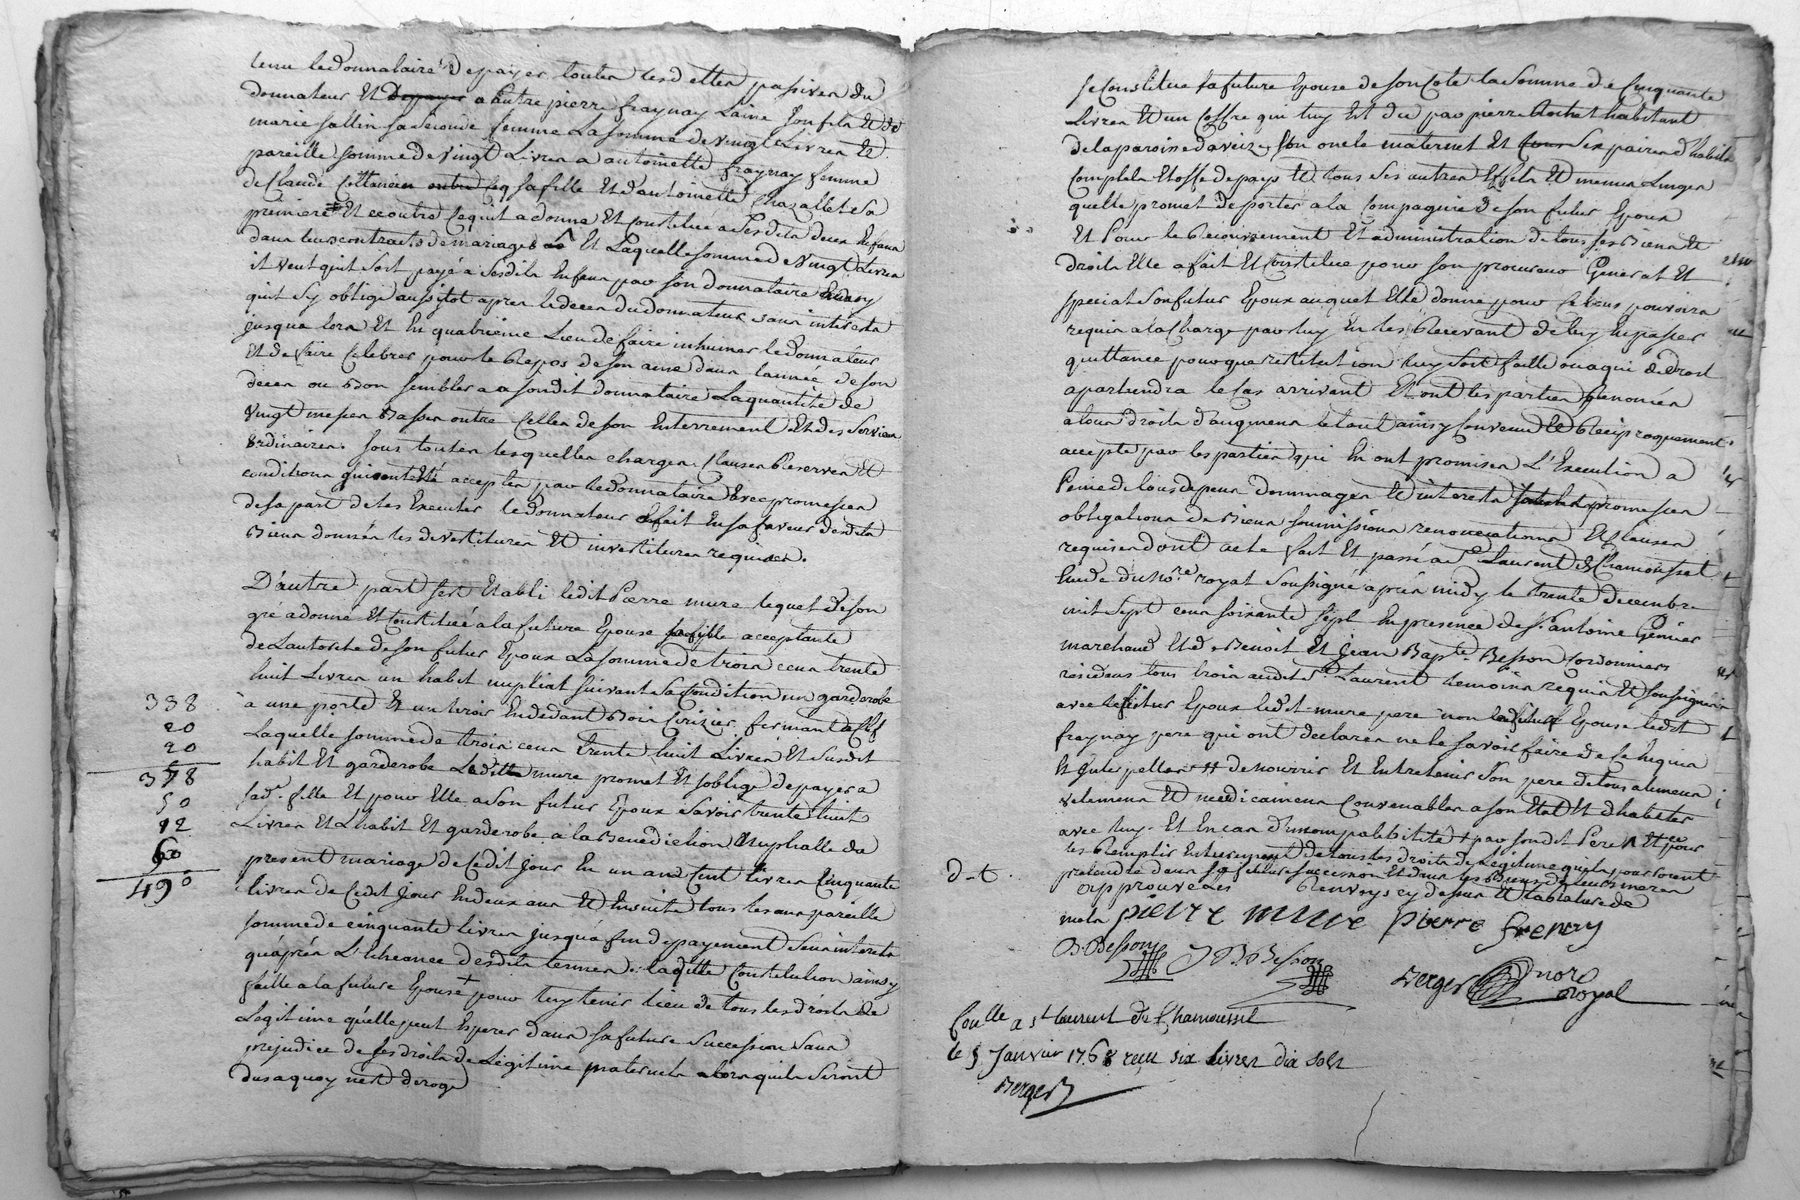 tenu le donnataire de payer toutes les dettes passives du
donnateur Et Depayer a autre pierre fraynay Laine son fils Et de
marie fallin sa seconde femme La somme de vingt Livres Et
pareille somme de vingt Livres a antoinette fraynay femme
de Claude outre sa fille Et d'antoinette Chazallet sa
premiere Et ce outre ce quil a donné Et Constitué a Sesdits deux Enfans
dans leurs contracts de mariages Et Laquelle somme de Vingt Livres
il veut quil soit payé a Sesdits Enfans par son donnataire
quil sy oblige aussitot apres le deces du donnateur sans interets
jusqua lors Et En quatrieme Lieu de faire inhumer le donnateur
Et de faire Celebrer pour le Repos de son ame dans lannée de son
deces ou Bon semblera a sondit donnataire La quantité de
Vingt messes Basses outre Celles de son Enterrement Et des Services
ordinaires. sous toutes lesquelles charges Clauses Reserves Et
conditions qui ont été acceptés par le donnataire avec promesses
de sa part de les Executer le donnateur a fait En sa faveur desdits
Biens donnés les devestitures Et investitures requises.
D'autre part s'est Etabli ledit Pierre mure lequel de son
gré a donné Et Constitué a la future Epouse sa fille acceptante
de Lautorité de son futur Epoux La somme de trois cens trente
huit Livres un habit nuptial suivant sa Condition un garderobe
338
à une porte Et un tiroir En dedant Bois Cerizier fermant a Clef
20
Laquelle somme de trois cens trente huit Livres Et susdit
20
habit Et garderobe Ledit mure promet Et soblige de payer a
378
sad.e fille Et pour Elle a son futur Epoux Savoir trente huit
50
Livres Et L'habit Et garderobe a la Benediction Nuptialle du
12
present mariage de Cedit Jour En un an Cent livres Cinquante
60
livres de Cedit Jour En deux ans Et Ensuite tous les ans pareille
490
somme de cinquante livres jusqu'a fin de payement sans interets
qu'après L'echeance desdits termes. laditte Constitution ainsy
faitte a la future Epouse + pour luy tenir lieu de tous les droits de
Legitime qu'elle peut Esperer dans sa future Succession Sans
prejudice de ses droits de Légitime maternels alors quils Seront
dus a quoy n'est derogé
se Constitue la future Epouse de son Coté la somme de Cinquante
Livres Et un Coffre qui luy Est du par pierre habitant
de la paroisse d'aveize Son oncle maternel Et Six paires d'habits
Complets Etoffe de pays Et tous Ses autres Effets Et menus Linges
quelle promet de porter a la Compagnie de son futur Epoux
Et Pour le Recouvrement Et administration de tous ses Biens Et
droits Elle a fait Et Constitué pour son procureur General Et
special Son futur Epoux auquel Elle donne pour ce tous pouvoirs
requis a la Charge par luy En les Recevant de luy En passer
quittance pour que restitution luy Soit faitte ou a qui de droit
apartiendra le Cas arrivant Et ont les parties Renoncés
a tous droits d'augmens le tout ainsy Convenu Et Reciproquement
accepté par les parties qui En ont promises L'Execution a
Peine de tous depens Dommages Et interets promesses
obligations de Biens soumissions renonciations Et clauses
requises dont acte fait Et passé a St Laurent de Chamousset
Etude du no.re royal Soussigné après midy le trente decembre
mil Sept cens soixante Sept En presence de S.r antoine Grenier
marchand Et de Benoit Et Jean Bap.te Besson Cordonniers
residens tous trois audit St Laurent temoins requis Et Soussignés
avec le futur Epoux ledit mure pere non la future Epouse ledit
fraynay pere qui ont declarés ne le savoir faire de ce Enquis
Et Interpellés ++ de nourrir Et Entretenir Son pere de tous alimens
vetemens Et medicamens Convenables a son Etat Et d'habiter
avec luy. Et En cas d'incompatibilité + par sondit Pere Et pour
les Remplir Entierement de tous les droits de Legitime quils pourroient
d-t.
pretendre dans sa future succession Et dans les Biens de leurs meres
approuvé les Renvoys cy dessus Et la rature de
mots pierre mure pierre freney
B. Besson J B. Besson
Berger nore
royal
Conllé a St laurent de Chamousset
le 5 Janvier 1768 reçu six livres dix sols
Berger